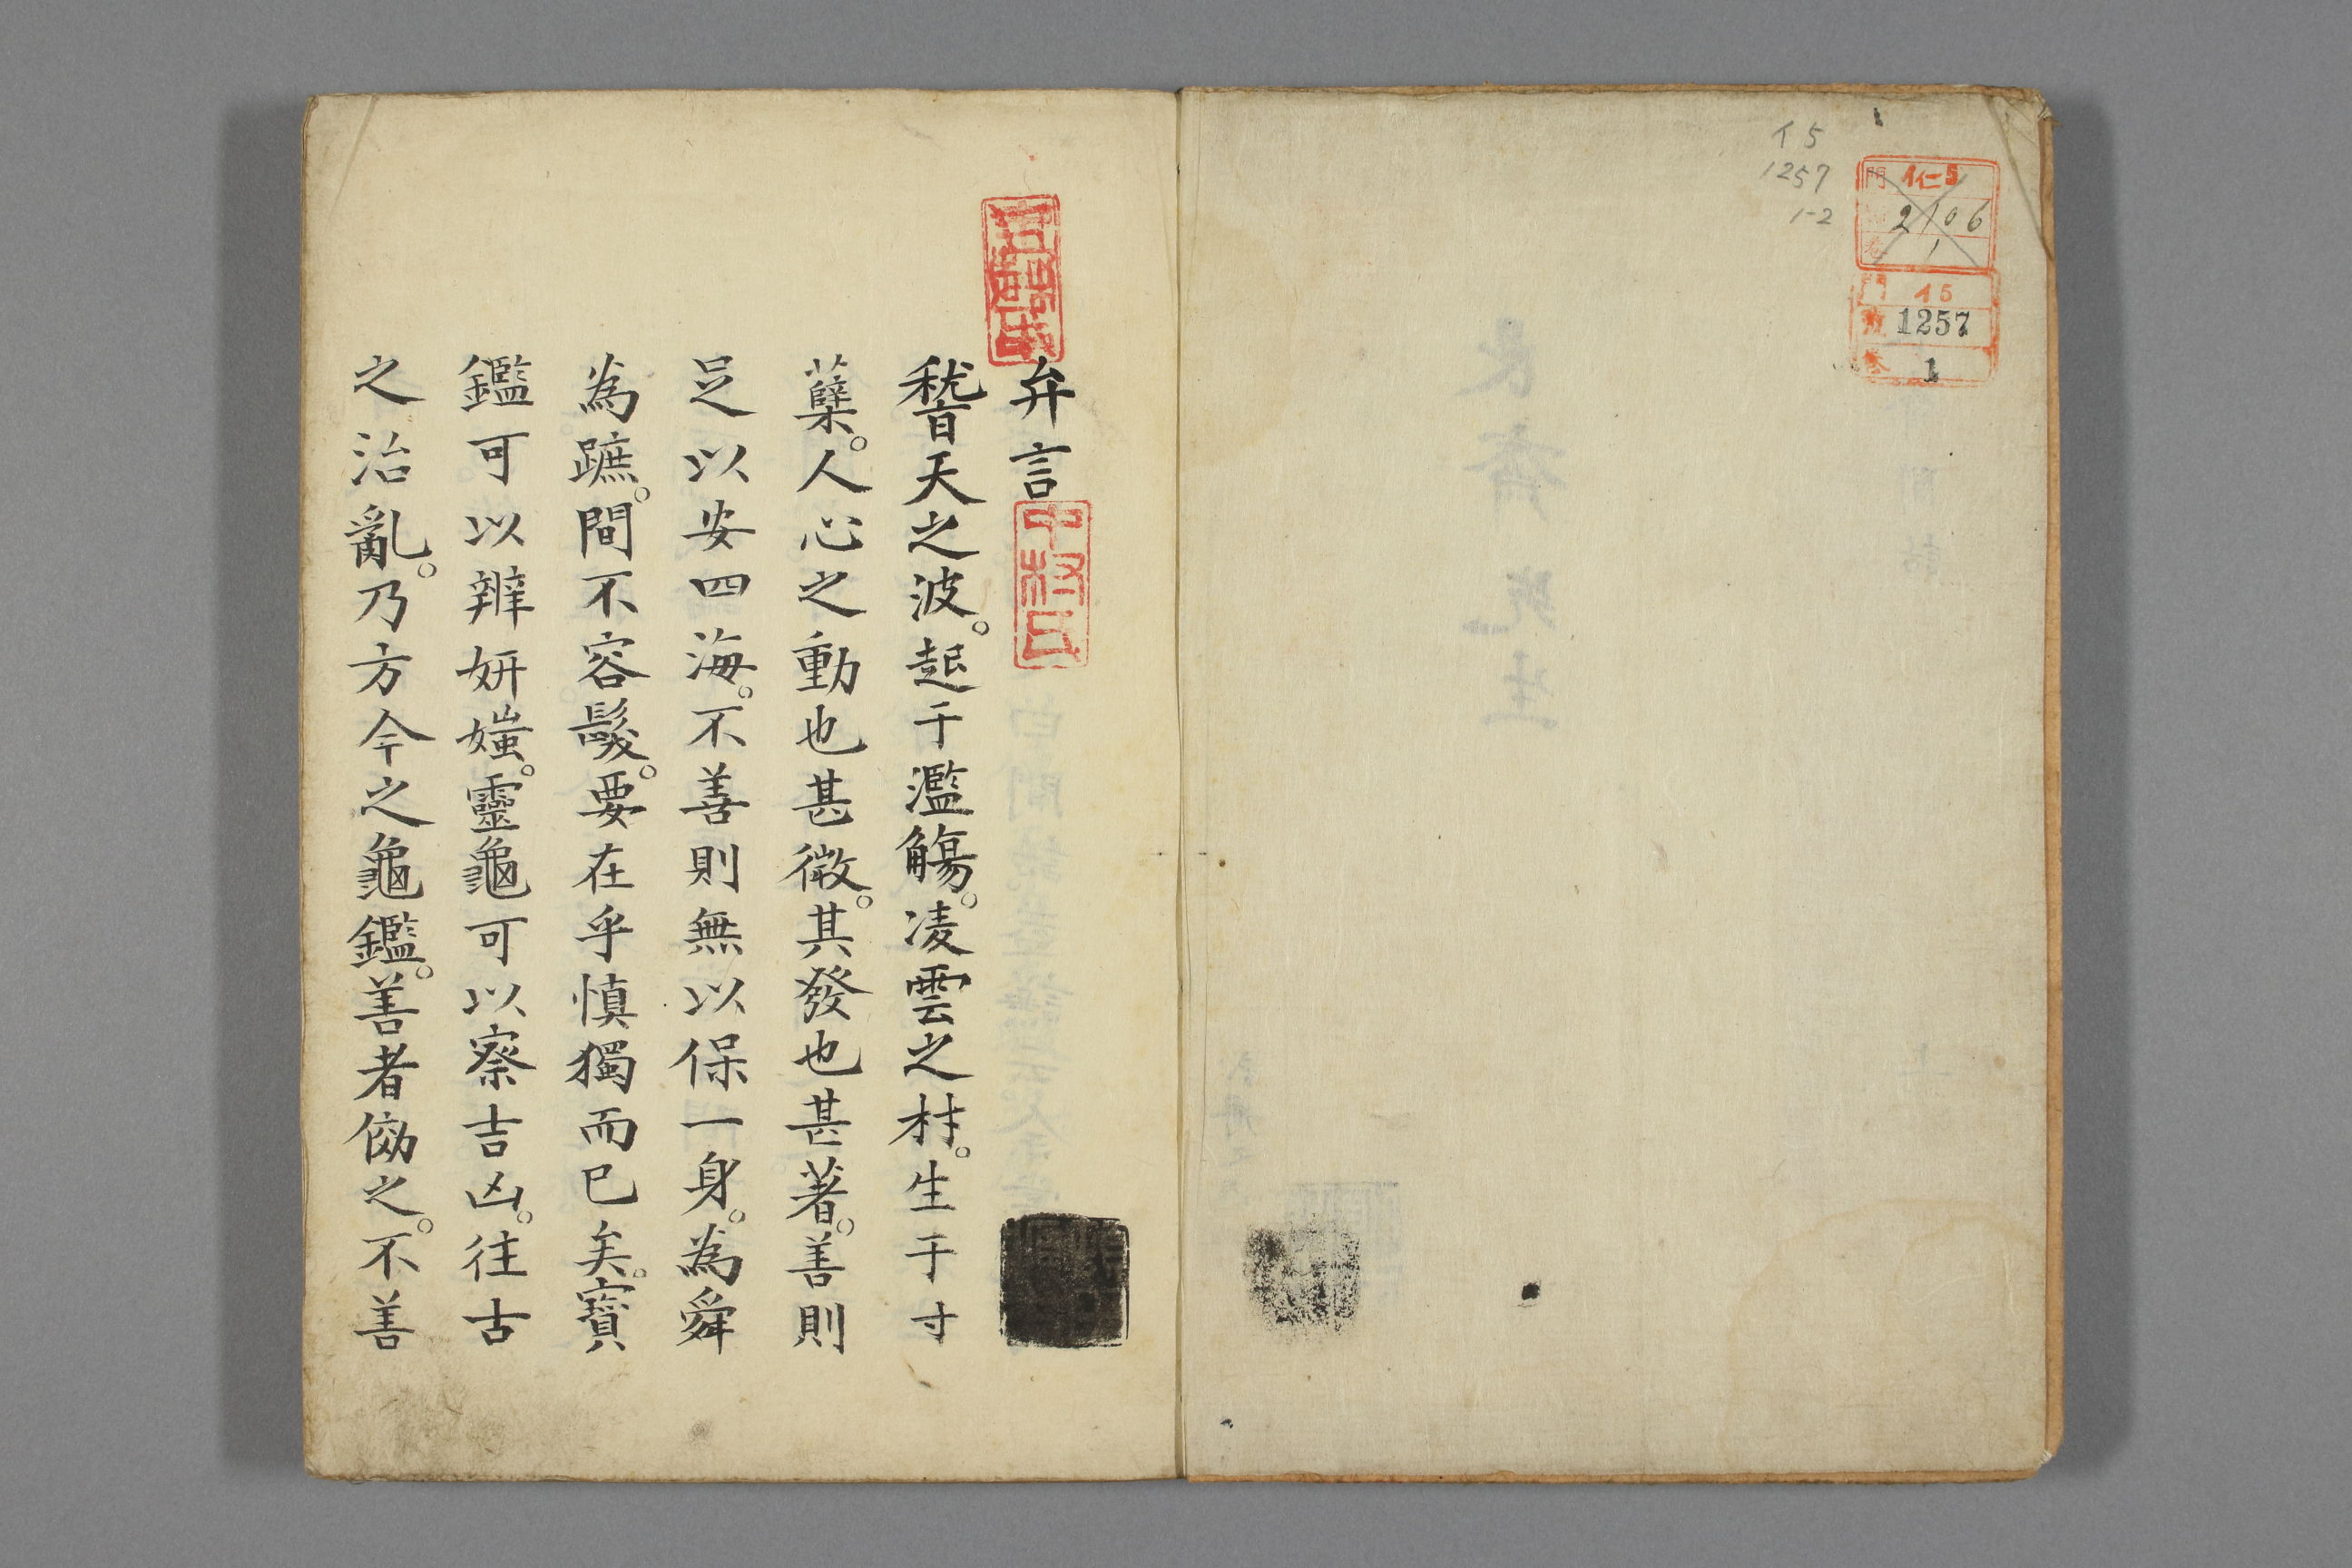 イ5
1257
1-2
門 イ仁5
2106
巻 1
門 イ5
號 1257
巻 1
弁言
中村氏
稽天之波。起于濫觴。凌雲之材。生于寸
蘖。人心之動也甚微。其發也甚著。善則
足以安四海。不善則無以保一身。為舜
為蹠。間不容髮。要在乎慎獨而已矣。寶
鑑可以辨妍媸。靈龜可以察吉凶。往古
之治亂。乃方今之龜鑑。善者傚之。不善